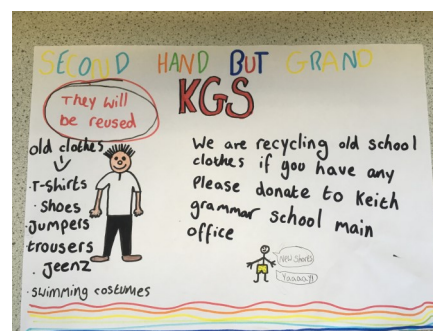 SECOND HAND BUT GRAND
KGS
They will
be reused
old clothes
·T-shirts
·Shoes
·Jumpers
·trousers
·Jeenz
·swimming costumes
We are recycling old school
clothes if you have any
Please donate to Keith
grammar school main
office
New shorts
Yaaaay!!